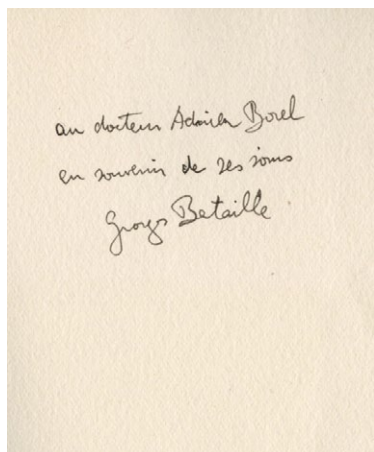 au docteur Adrien Borel
en souvenir de ses soins
Georges Bataille